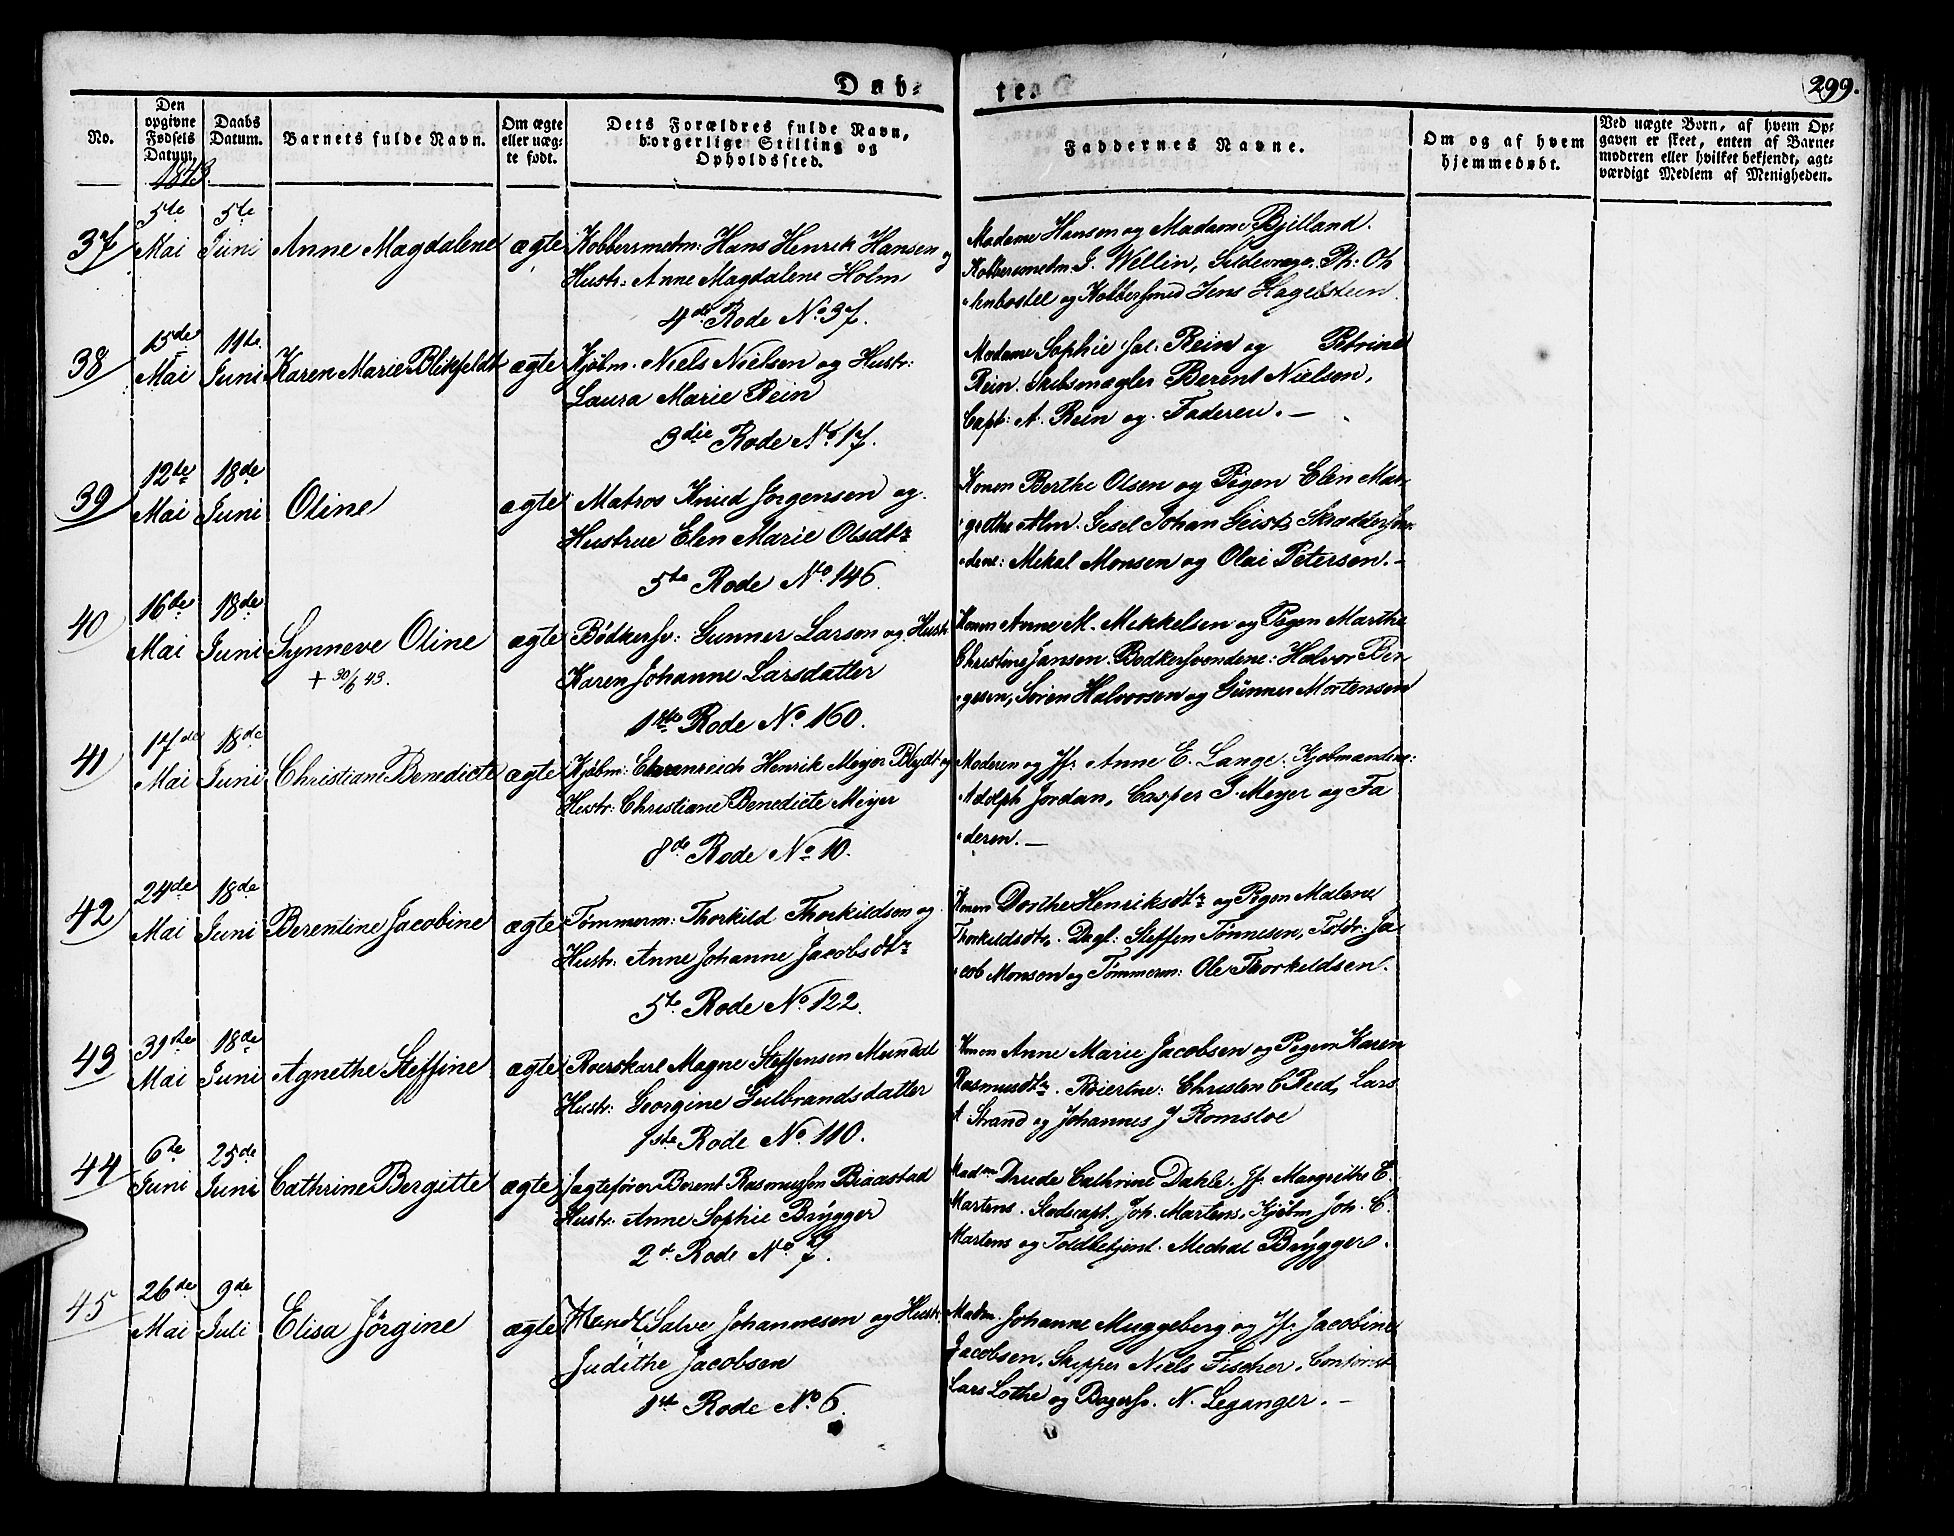 Døb-
te.
299.
No.
Den opgivne Fødsels Datum.
Daabs Datum.
Barnets fulde Navn.
Om ægte eller uæg- te født.
Dets Forældres fulde Navn, borgerlige Stilling og Opholdssted.
Faddernes Navne.
Om og af hvem hjemmedøbt.
Ved uægte Børn, af hvem Op- gaven er skeet, enten af Barne- moderen eller hvilket bekjendt, agt- værdigt Medlem af Menigheden.
1843.
37 5te Mai 5te Juni Anne Magdalene ægte Kobbersmedm: Hans Henrik Hansen og
Hustr: Anne Magdalene Holm
4de Rode No 37.
Madame Hansen og Madame Bjelland.
Kobbersmedm. J. Wellin, Ph: Oh
lenbostel og Kobbersmed Jens Hagelsteen.
38 15de Mai 11te Juni Karen Marie Blikfeldt ægte Kjøbm. Niels Nielsen og Hustr:
Laura Marie Rein
3die Rode No 17.
Madame Sophie Sal. Rein og Petrine
Rein. Skibsmægler Berent Nielsen,
Capt: A. Rein og Faderen. —
39 12te Mai 18de Juni Oline ægte Matros Knud Jørgensen og
Hustrue Elen Marie Olsdtr
5te Rode No 146.
Konen Berthe Olsen og Pigen Elen Mar,
grethe Alm. Johan Geist,
dene: Mekal Monsen og Olai Petersen. —
40 16de Mai 18de Juni Synneve Oline ægte Bødkersv: Gunner Larsen og Hustr
+ 30/6 43.
Karen Johanne Larsdatter
1ste Rode No 160.
Konen Anne M. Mikkelsen og Pigen Marthe
Christine Jansen. Bødkersvendene: Halvor Bør
gesen, Søren Halvorsen og Gunner Mortensen
41 17de Mai 18de Juni Christiane Benedicte ægte Kjøbm: Ehrenreich Henrik Meyer Blydt og
Hustr: Christiane Benedicte Meyer
8de Rode No 10.
Moderen og Jfr. Anne E. Lange. Kjøbmændene:
Adolph Jordan, Casper J. Meyer og Fa
deren. —
42 24de Mai 18de Juni Berentine Jacobine ægte Tømmerm: Thorkild Thorkildsen og
Hustr: Anne Johanne Jacobsdtr
5te Rode No 122.
Konen Dorthe Henriksdtr og Pigen Malene
Thorkildsdtr. Dagl: Steffen Tønnesen, Ja
cob Monsen og Tømmerm: Ole Thorkildsen.
43 31te Mai 18de Juni Agnethe Steffine ægte Roerskarl Magne Steffensen Mundal
Hustr: Georgine Gulbrandsdatter
1ste Rode No 110.
Konen Anne Marie Jacobsen og Pigen Karen
Rasmusdtr. Christen C Reed, Lars
A. Strand og Johannes J Romsloe
44 6te Juni 25de Juni Cathrine Bergitte ægte Jagtefører Berent Rasmussen Biaastad
Hustr: Anne Sophie Brygger
2de Rode No 7.
Madm Drude Cathrine Dahle. Jfr. Margrethe C.
Martens. Stadscapt. Joh. Martens, Kjøbm Joh. C.
Martens og Toldbetjent. Mechal Brygger.
45 26de Mai 9de Juli Elisa Jörgine ægte Handl Salve Johannesen og Hustr:
Judithe Jacobsen
1ste Rode No 6.
Madm Johanne Muggeberg og Jfr. Jacobine
Jacobsen. Skipper Niels Fischer, Contorist
Lars Lothe og Bagersv. N. Leganger. —